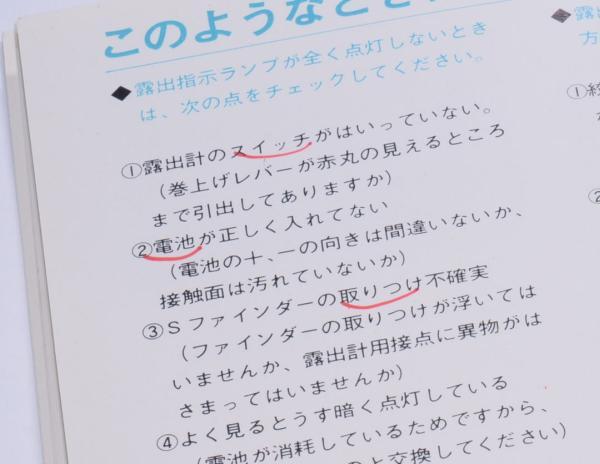 このようなとき
◆露出指示ランプが全く点灯しないとき
は、次の点をチェックしてください。
①露出計のスイッチがはいっていない。
(巻上げレバーが赤丸の見えるところ
まで引出してありますか)
②電池が正しく入れてない
(電池の十、一の向きは間違いないか、
接触面は汚れていないか)
③Sファインダーの取りつけ不確実
(ファインダーの取りつけが浮いては
いませんか、露出計用接点に異物がは
さまってはいませんか)
④よく見るとうす暗く点灯している
(電池が消耗しているためですから、
と交換してください)
◆
方
①絞
②